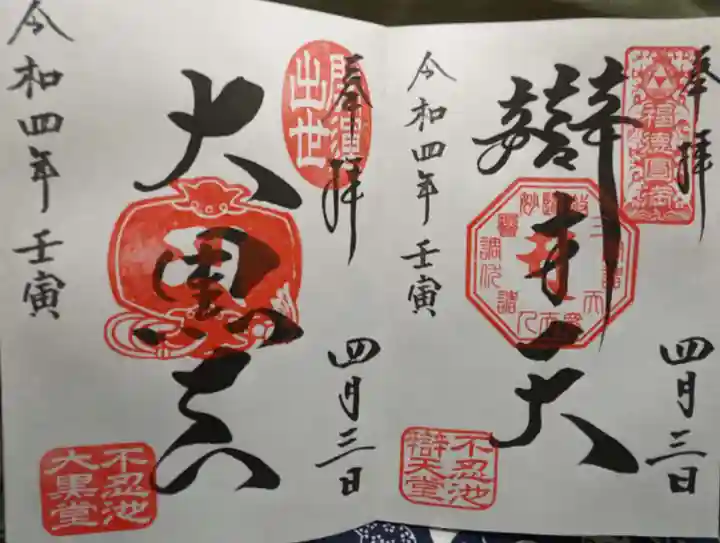 奉拝
福徳円満
辯才天
四月三日
令和四年壬寅
不忍池
辯天堂
奉拝
開運
出世
大黒天
四月三日
令和四年壬寅
不忍池
大黒堂